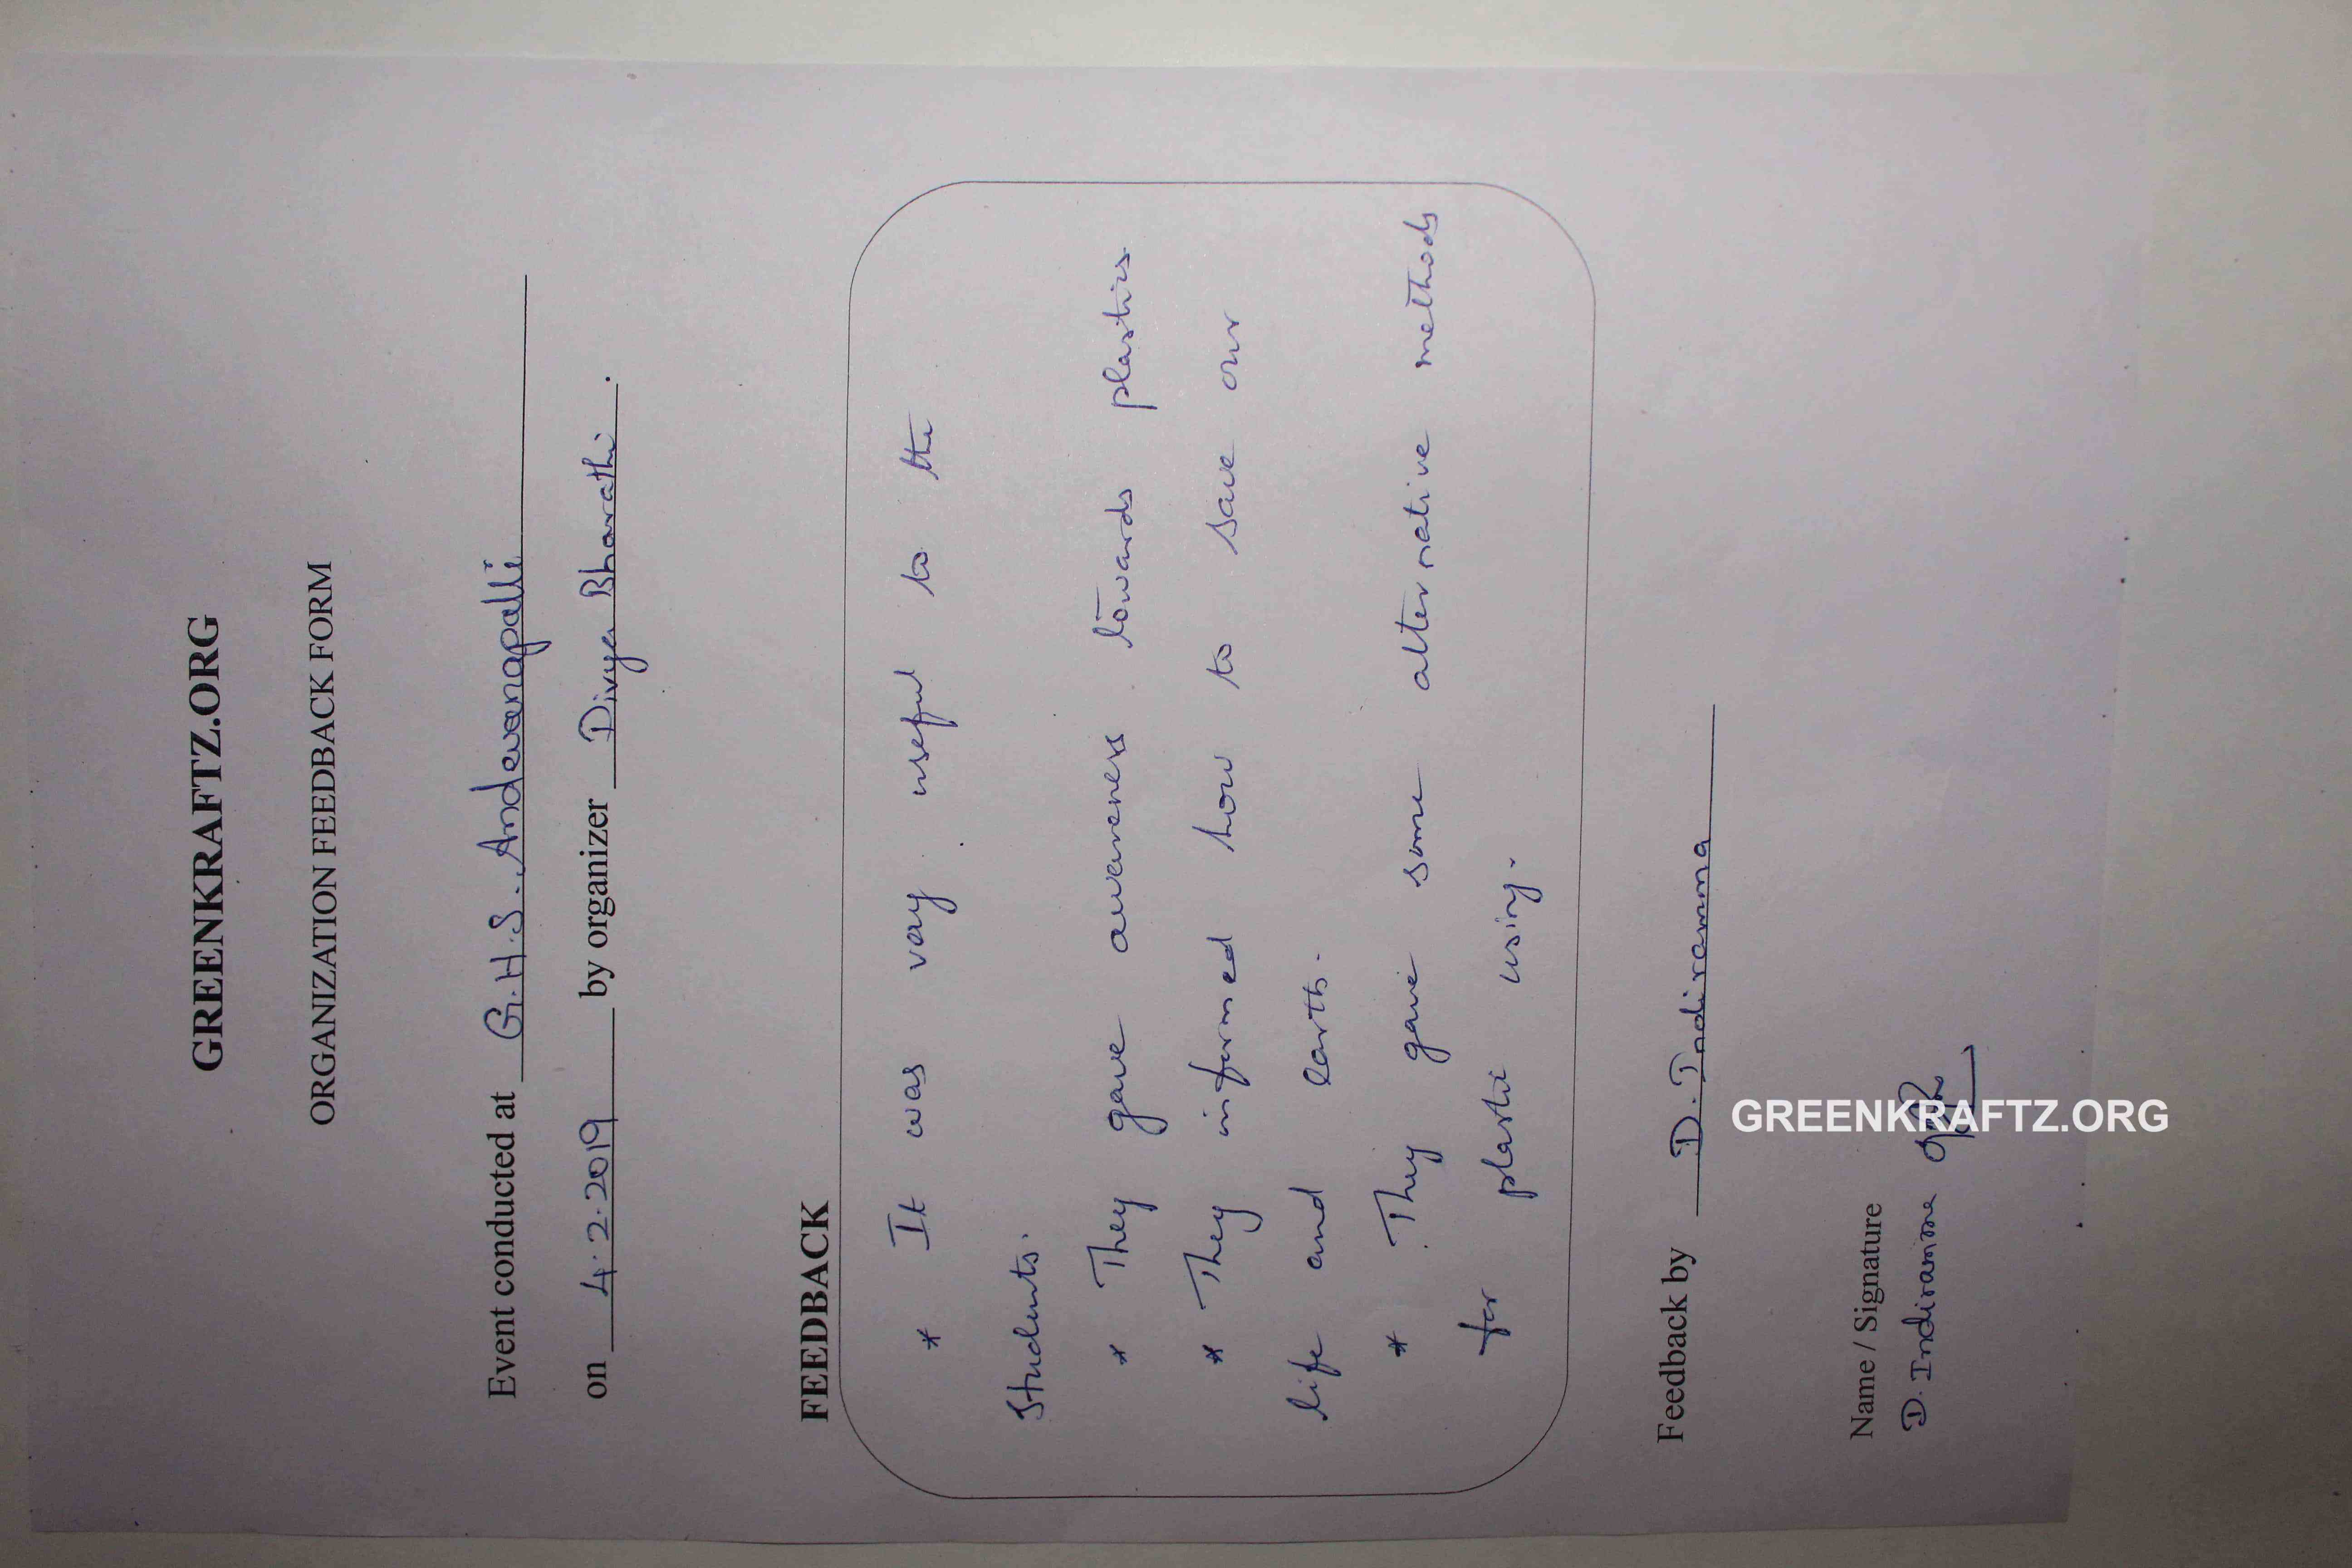 GREENKRAFTZ.ORG
ORGANIZATION FEEDBACK FORM
Event conducted at G.H.S. Andewanapalli
on 4.2.2019 by organizer Divya Bharathi.
FEEDBACK
* It was very useful to the
Students.
* They gave awareness towards plastics.
* They informed how to save our
life and earth.
* They gave some alternative methods
for plastic using.
Feedback by D. Indiramma
Name / Signature
D. Indiramma
GREENKRAFTZ.ORG